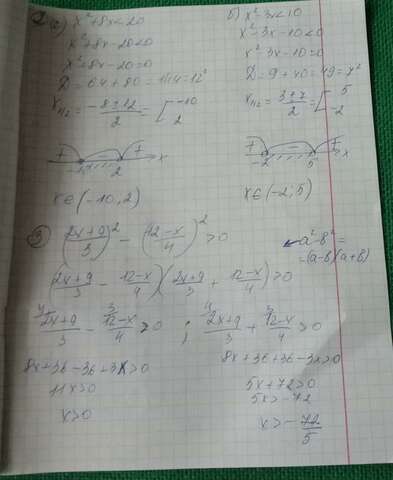 2 а) x²+8x<20
x²+8x-20<0
x²+8x-20=0
D=64+80=144=12²
x₁/₂=(-8±12)/2=[-10
2
+ - +
-10 2 x
x∈(-10,2)
б) x²-3x<10
x²-3x-10<0
x²-3x-10=0
D=9+40=49=7²
x₁/₂=(3±7)/2=[5
-2
+ - +
-2 5 x
x∈(-2;5)
3) ((2x+9)/3)² - ((12-x)/4)²>0
a²-b²=
=(a-b)(a+b)
((2x+9)/3 - (12-x)/4)((2x+9)/3 + (12-x)/4)>0
⁴(2x+9)/3 - ³(12-x)/4>0 ; ⁴(2x+9)/3 + ³(12-x)/4>0
8x+36-36+3x>0
11x>0
x>0
8x+36+36-3x>0
5x+72>0
5x>-72
x>-72/5